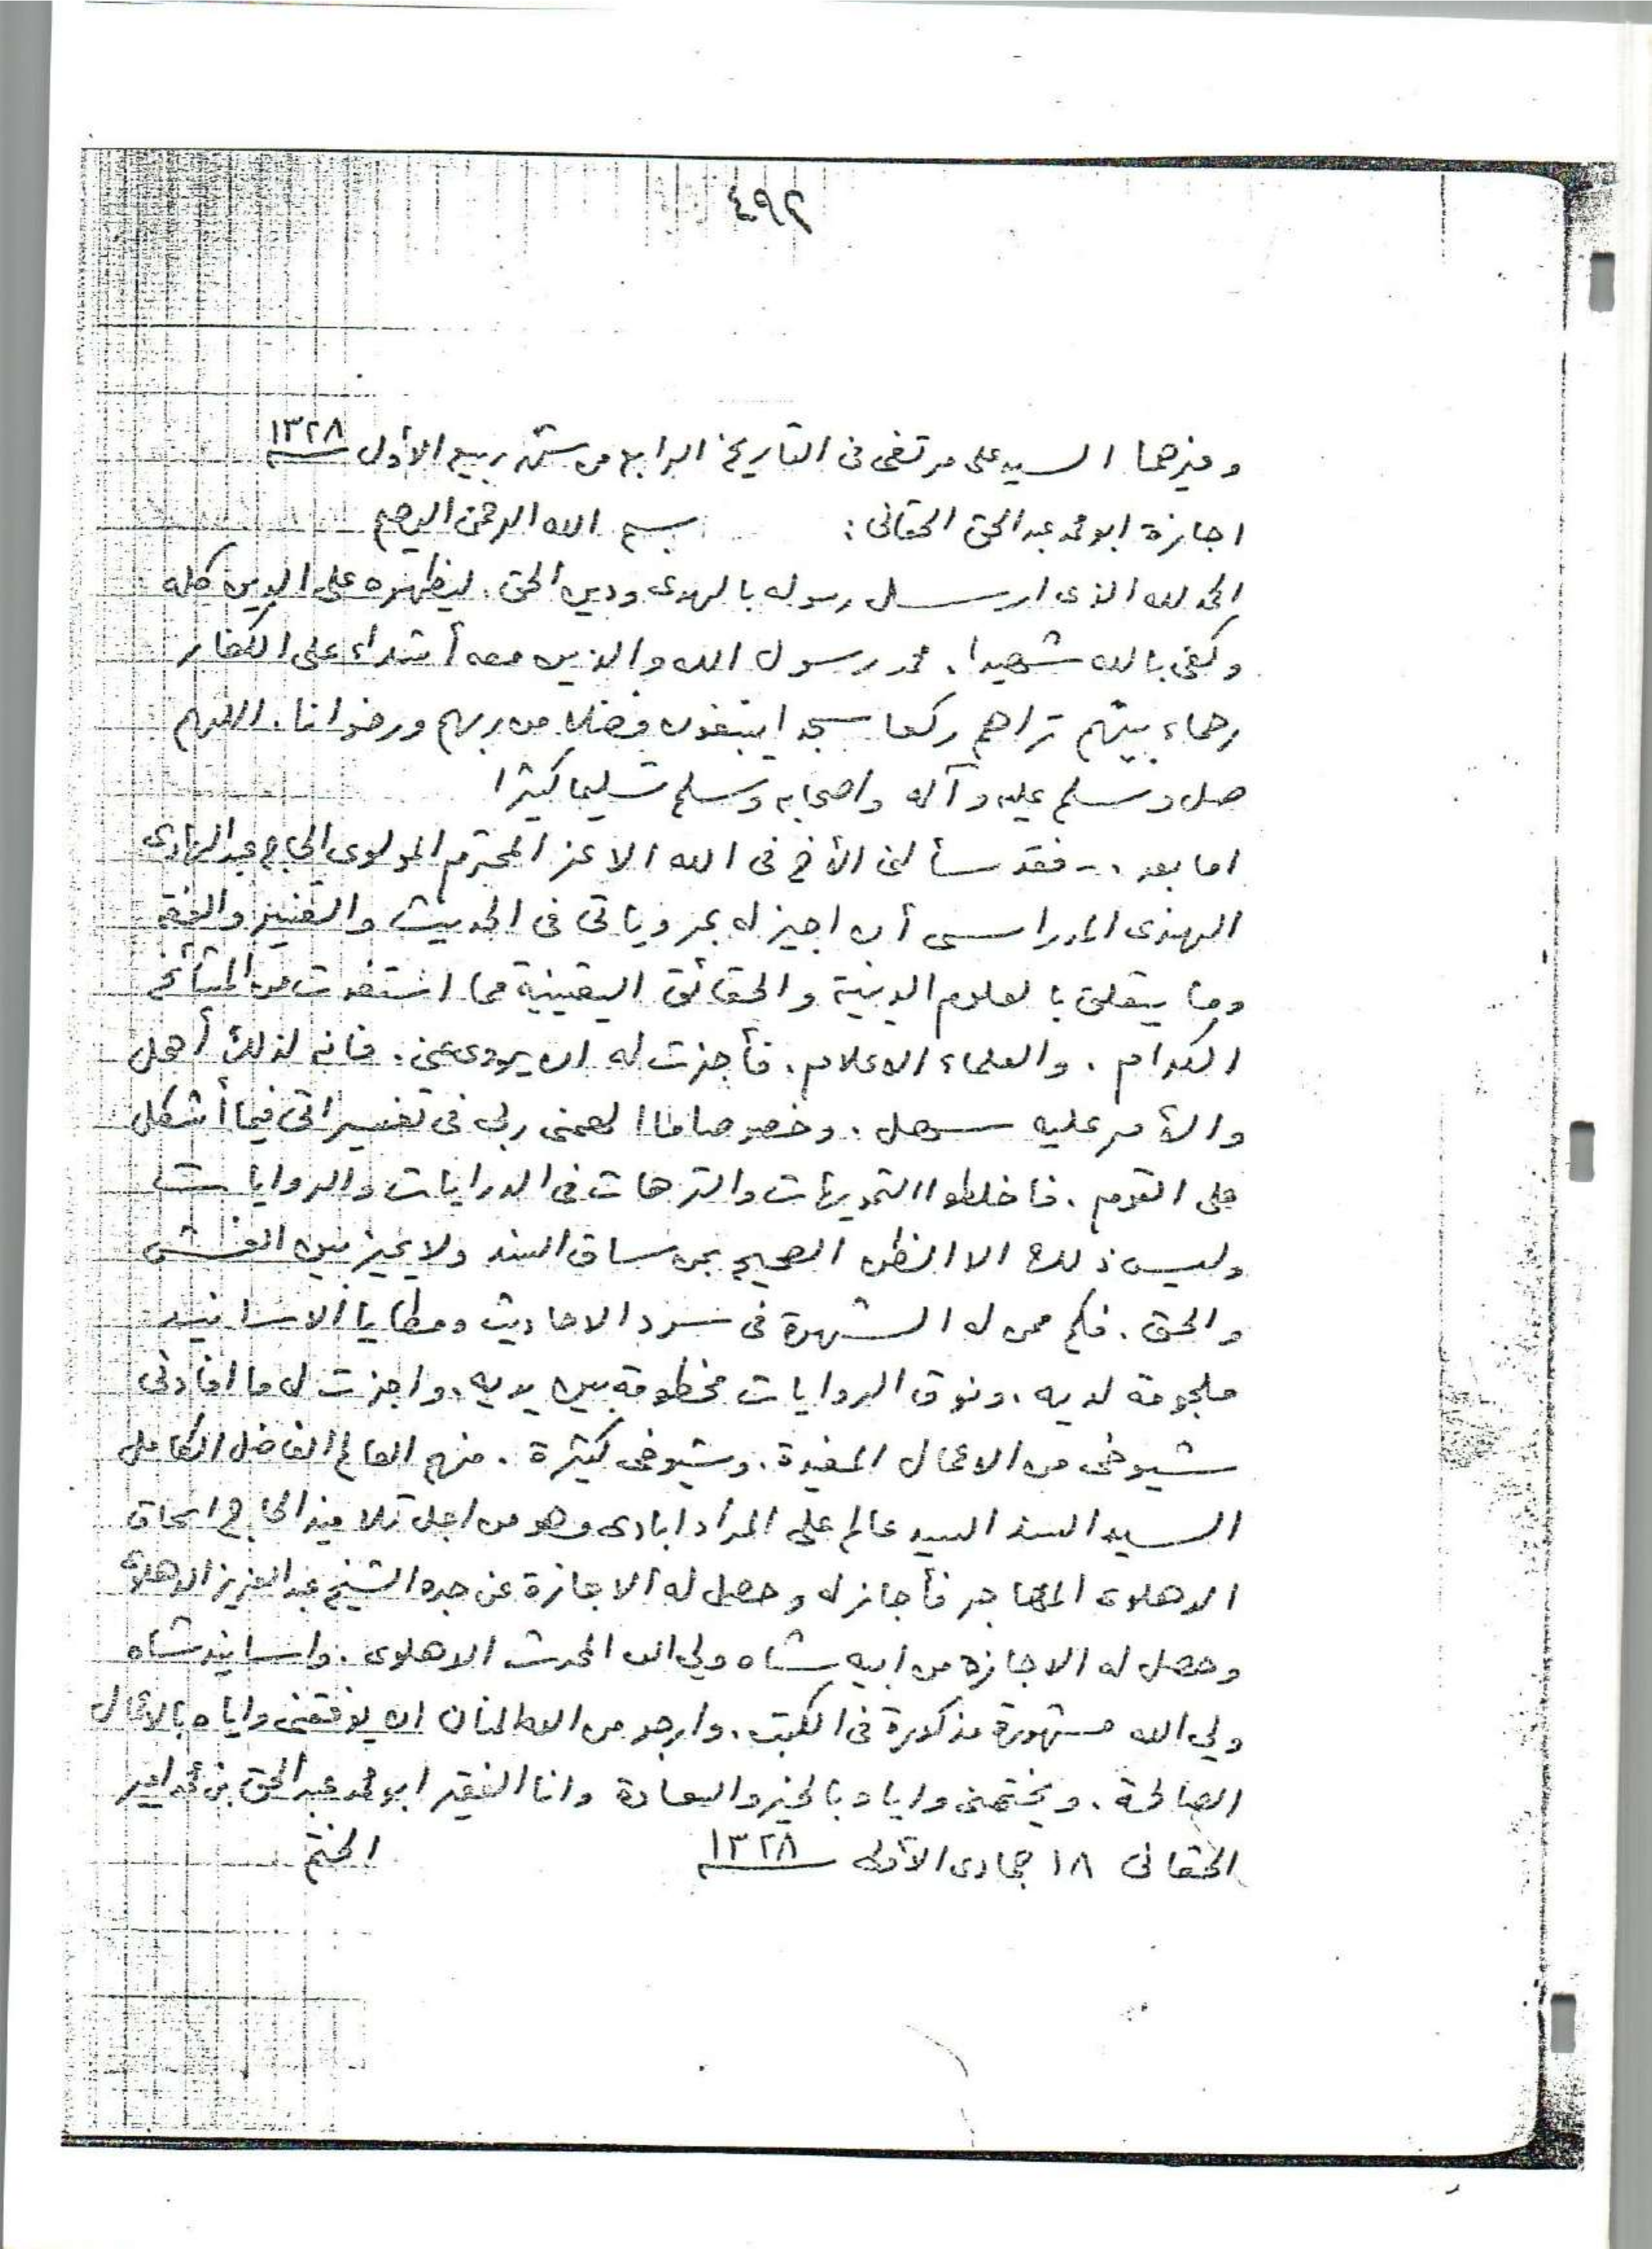 ٤٩٢
وغيرهما السيد على مرتضى فى التاريخ الرابع من شهر ربيع الاول ١٣٢٨
اجازة ابو محمد عبد الحق الحقانى : بسم الله الرحمن الرحيم
الحمد لله الذى ارسل رسوله بالهدى ودين الحق . ليظهره على الدين كله
وكفى بالله شهيدا . محمد رسول الله والذين معه أشداء على الكفار
رحماء بينهم تراهم ركعا سجدا يبتغون فضلا من ربهم ورضوانا . اللهم
صل وسلم عليه وآله واصحابه وسلم تسليما كثيرا
اما بعد .- فقد سألنى الأخ فى الله الاعز المحترم المولوى الحاج عبد الهادى
الهندى المدراسى أن اجيز له بمروياتى فى الحديث والتفسير والفقه
وما يتعلق بالعلوم الدينية والحقائق اليقينية مما استفدت من المشائخ
الكرام . والعلماء الاعلام . فأجزت له ان يروى عنى . فانه لذلك أهل
والأمر عليه سهل . وخصوصا ما الهمنى ربى فى تفسيراتى فيما أشكل
على القوم . فاخلطوا التمويهات والترهات فى الدرايات والروايات
وليس ذلك الا الظن الصحيح بمن ساق السند ولا يميز بين الغش
والحق . فكم ممن له الشهرة فى سرد الاحاديث ومطايا الاسانيد
ملجومة لديه . ونوق الروايات مخطومة بين يديه . واجزت له ما افادنى
شيوخى من الاعمال المفيدة . وشيوخى كثيرة . منهم العالم الفاضل الكامل
السيد السند السيد عالم على المراد ابادى وهو من اجل تلاميذ الحاج اسحاق
الدهلوى المهاجر فأجاز له وحصل له الاجازة عن جده الشيخ عبد العزيز الدهلوى
وحصل له الاجازة من ابيه شاه ولي الله المحدث الدهلوى . واسانيد شاه
ولي الله مشهورة مذكورة فى الكتب . وارجو من الله المنان ان يوفقنى واياه بالاعمال
الصالحة . ويختمنى واياه بالخير والسعادة وانا الفقير ابو محمد عبد الحق بن محمد امير
الحقانى ١٨ جمادى الأولى ١٣٢٨ الختم